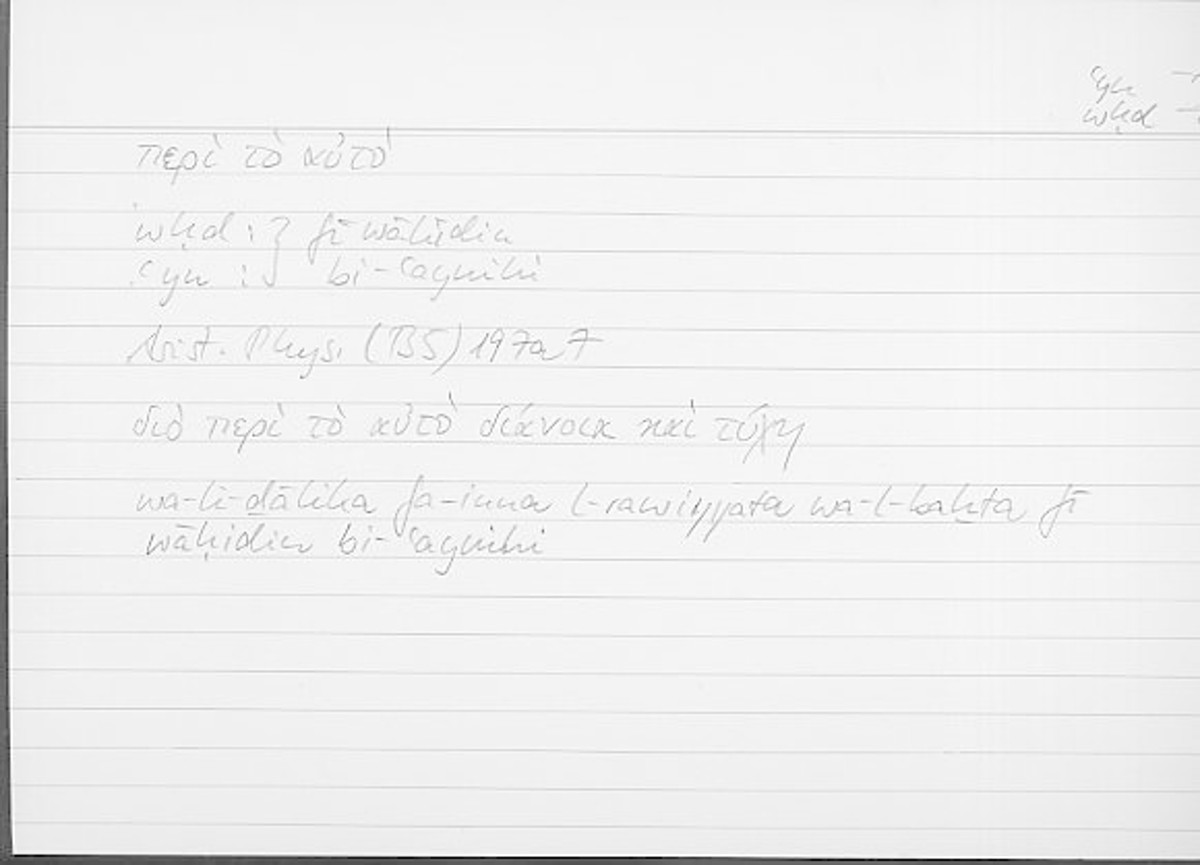 ʿyn
wḥd
περὶ τὸ αὐτὸ
wḥd : } fī wāḥidin
ʿyn : } bi-ʿaynihi
Arist. Phys. (BS) 197a7
διὸ περὶ τὸ αὐτὸ διάνοια καὶ τύχη
wa-li-ḏālika fa-inna l-rawiyyata wa-l-baḫta fī
wāḥidin bi-ʿaynihi